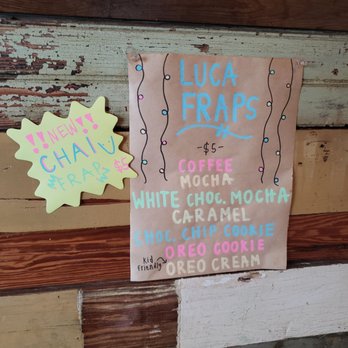 !!NEW!!
CHAI
FRAP
$5
LUCA
FRAPS
-$5-
COFFEE
MOCHA
WHITE CHOC. MOCHA
CARAMEL
CHOC. CHIP COOKIE
OREO COOKIE
Kid
Friendly
OREO CREAM